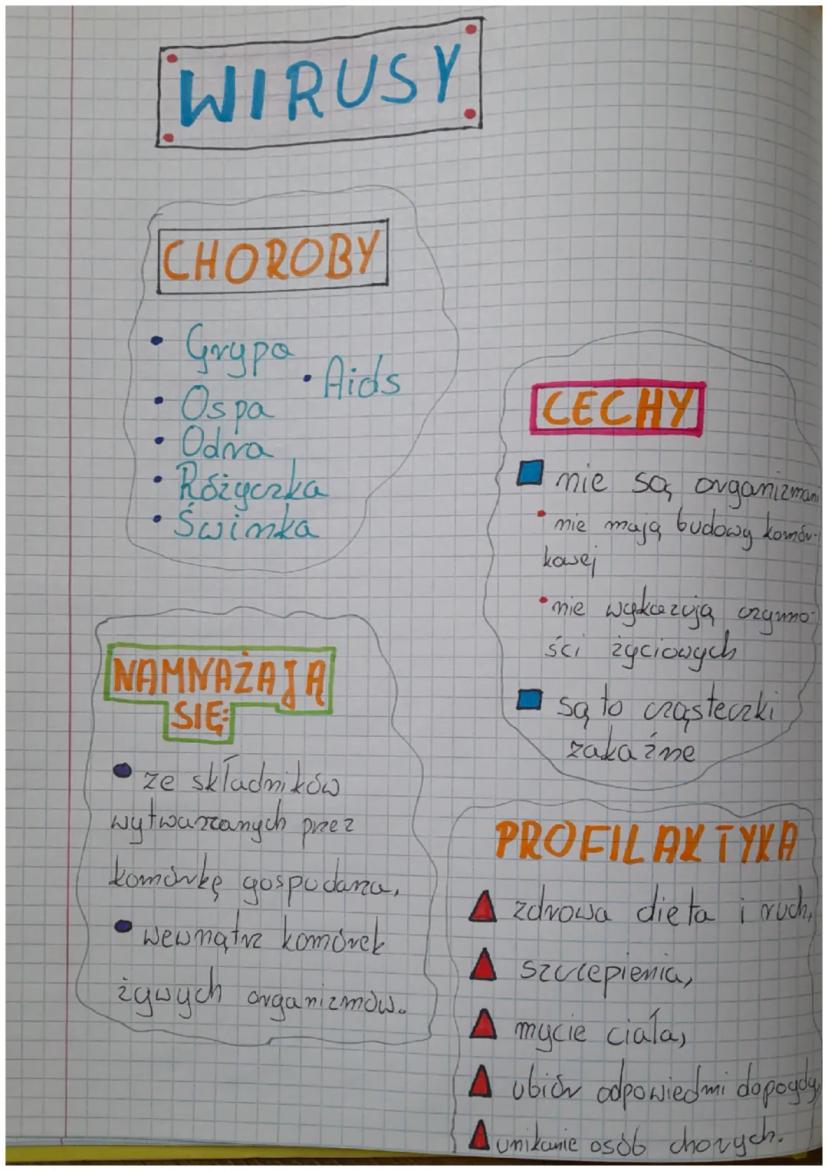 WIRUSY
CHOROBY
• Grypa
• Aids
• Ospa
• Odra
• Różyczka
• Świnka
CECHY
nie są organizmami
• nie mają budowy komór-
kowej
• nie wykazują czynno-
ści życiowych
są to cząsteczki
zakaźne
NAMNAŻAJĄ
SIĘ:
• ze składników
wytwarzanych przez
komórkę gospodarza,
• wewnątrz komórek
żywych organizmów.
PROFILAKTYKA
zdrowa dieta i ruch,
szczepienia,
mycie ciała,
ubiór odpowiedni do pogody,
unikanie osób chorych.